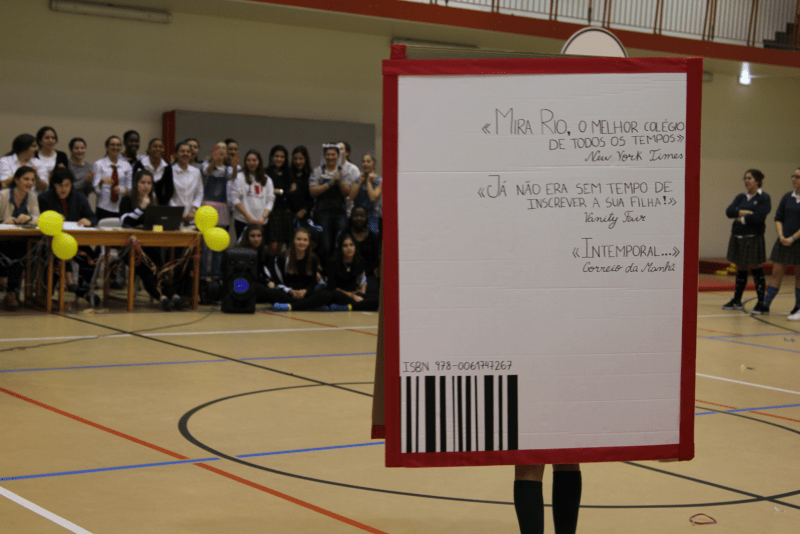 «MIRA RIO, O MELHOR COLÉGIO
DE TODOS OS TEMPOS»
New York Times
«JÁ NÃO ERA SEM TEMPO DE
INSCREVER A SUA FILHA!»
Vanity Fair
«INTEMPORAL...»
Correio da Manhã
ISBN 978-0061747267